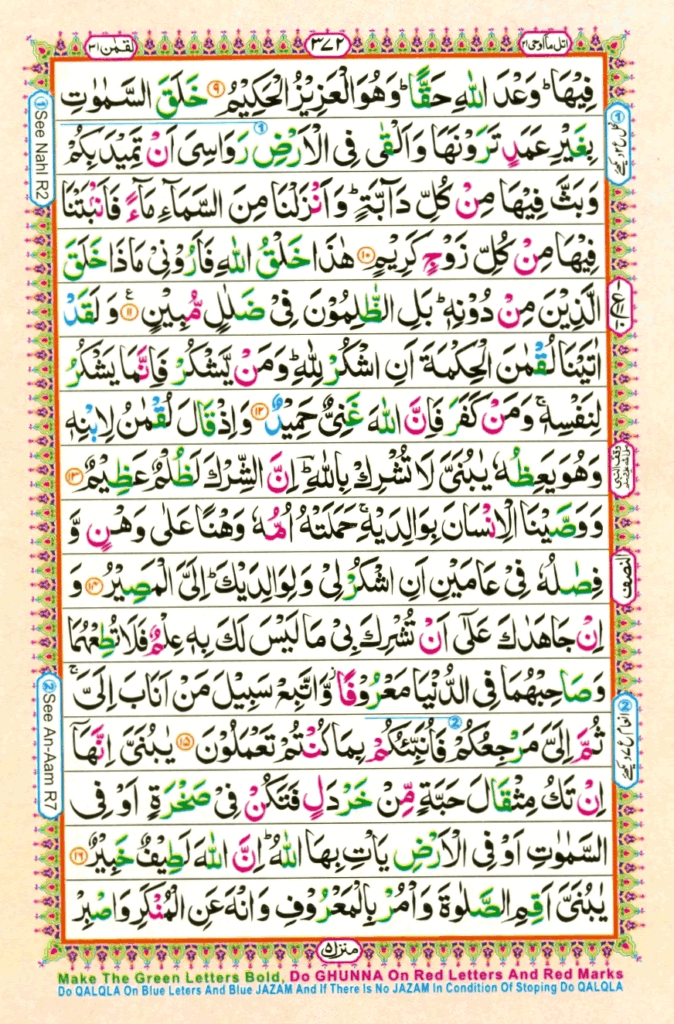 اتل مآ اوحی ۲۱
۳۷۲
لقمٰن ۳۱
فِيْهَا ؕ وَعْدَ اللّٰهِ حَقًّا ؕ وَهُوَ الْعَزِيْزُ الْحَكِيْمُ ۹ خَلَقَ السَّمٰوٰتِ
بِغَيْرِ عَمَدٍ تَرَوْنَهَا وَاَلْقٰى فِى الْاَرْضِ رَوَاسِىَ اَنْ تَمِيْدَ بِكُمْ
وَبَثَّ فِيْهَا مِنْ كُلِّ دَآبَّةٍ ؕ وَاَنْزَلْنَا مِنَ السَّمَآءِ مَآءً فَاَنْۢبَتْنَا
فِيْهَا مِنْ كُلِّ زَوْجٍ كَرِيْمٍ ۱۰ هٰذَا خَلْقُ اللّٰهِ فَاَرُوْنِىْ مَاذَا خَلَقَ
الَّذِيْنَ مِنْ دُوْنِهٖ ؕ بَلِ الظّٰلِمُوْنَ فِىْ ضَلٰلٍ مُّبِيْنٍ ۱۱ وَلَقَدْ
اٰتَيْنَا لُقْمٰنَ الْحِكْمَةَ اَنِ اشْكُرْ لِلّٰهِ ؕ وَمَنْ يَّشْكُرْ فَاِنَّمَا يَشْكُرُ
لِنَفْسِهٖ ۚ وَمَنْ كَفَرَ فَاِنَّ اللّٰهَ غَنِىٌّ حَمِيْدٌ ۱۲ وَاِذْ قَالَ لُقْمٰنُ لِابْنِهٖ
وَهُوَ يَعِظُهٗ يٰبُنَىَّ لَا تُشْرِكْ بِاللّٰهِ ؕ اِنَّ الشِّرْكَ لَظُلْمٌ عَظِيْمٌ ۱۳
وَوَصَّيْنَا الْاِنْسَانَ بِوَالِدَيْهِ ۚ حَمَلَتْهُ اُمُّهٗ وَهْنًا عَلٰى وَهْنٍ وَّ
فِصٰلُهٗ فِىْ عَامَيْنِ اَنِ اشْكُرْ لِىْ وَلِوَالِدَيْكَ ؕ اِلَىَّ الْمَصِيْرُ ۱۴ وَ
اِنْ جَاهَدٰكَ عَلٰٓى اَنْ تُشْرِكَ بِىْ مَا لَيْسَ لَكَ بِهٖ عِلْمٌ فَلَا تُطِعْهُمَا
وَصَاحِبْهُمَا فِى الدُّنْيَا مَعْرُوْفًا وَّاتَّبِعْ سَبِيْلَ مَنْ اَنَابَ اِلَىَّ ۚ
ثُمَّ اِلَىَّ مَرْجِعُكُمْ فَاُنَبِّئُكُمْ بِمَا كُنْتُمْ تَعْمَلُوْنَ ۱۵ يٰبُنَىَّ اِنَّهَآ
اِنْ تَكُ مِثْقَالَ حَبَّةٍ مِّنْ خَرْدَلٍ فَتَكُنْ فِىْ صَخْرَةٍ اَوْ فِى
السَّمٰوٰتِ اَوْ فِى الْاَرْضِ يَاْتِ بِهَا اللّٰهُ ؕ اِنَّ اللّٰهَ لَطِيْفٌ خَبِيْرٌ ۱۶
يٰبُنَىَّ اَقِمِ الصَّلٰوةَ وَاْمُرْ بِالْمَعْرُوْفِ وَانْهَ عَنِ الْمُنْكَرِ وَاصْبِرْ
النصف
① See Nahl R2
② See An-Aam R7
منزل ۵
Make The Green Letters Bold, Do GHUNNA On Red Letters And Red Marks
Do QALQLA On Blue Leters And Blue JAZAM And If There Is No JAZAM In Condition Of Stoping Do QALQLA